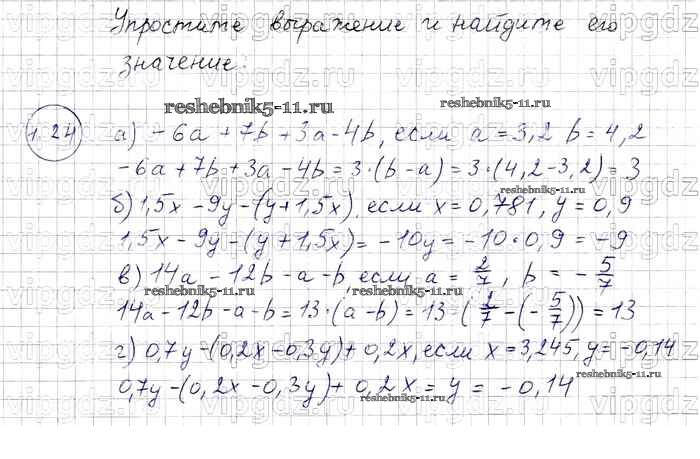 Упростите выражение и найдите его
значение:
reshebnik5-11.ru
reshebnik5-11.ru
1.24
а) -6a + 7b + 3a - 4b, если a = 3,2 b = 4,2
-6a + 7b + 3a - 4b = 3·(b - a) = 3·(4,2 - 3,2) = 3
reshebnik5-11.ru
б) 1,5x - 9y - (y + 1,5x), если x = 0,781, y = 0,9
1,5x - 9y - (y + 1,5x) = -10y = -10·0,9 = -9
в) 14a - 12b - a - b, если a = 2/7, b = -5/7
reshebnik5-11.ru
reshebnik5-11.ru
14a - 12b - a - b = 13·(a - b) = 13·(2/7 - (-5/7)) = 13
г) 0,7y - (0,2x - 0,3y) + 0,2x, если x = 3,245, y = -0,14
reshebnik5-11.ru
0,7y - (0,2x - 0,3y) + 0,2x = y = -0,14
reshebnik5-11.ru